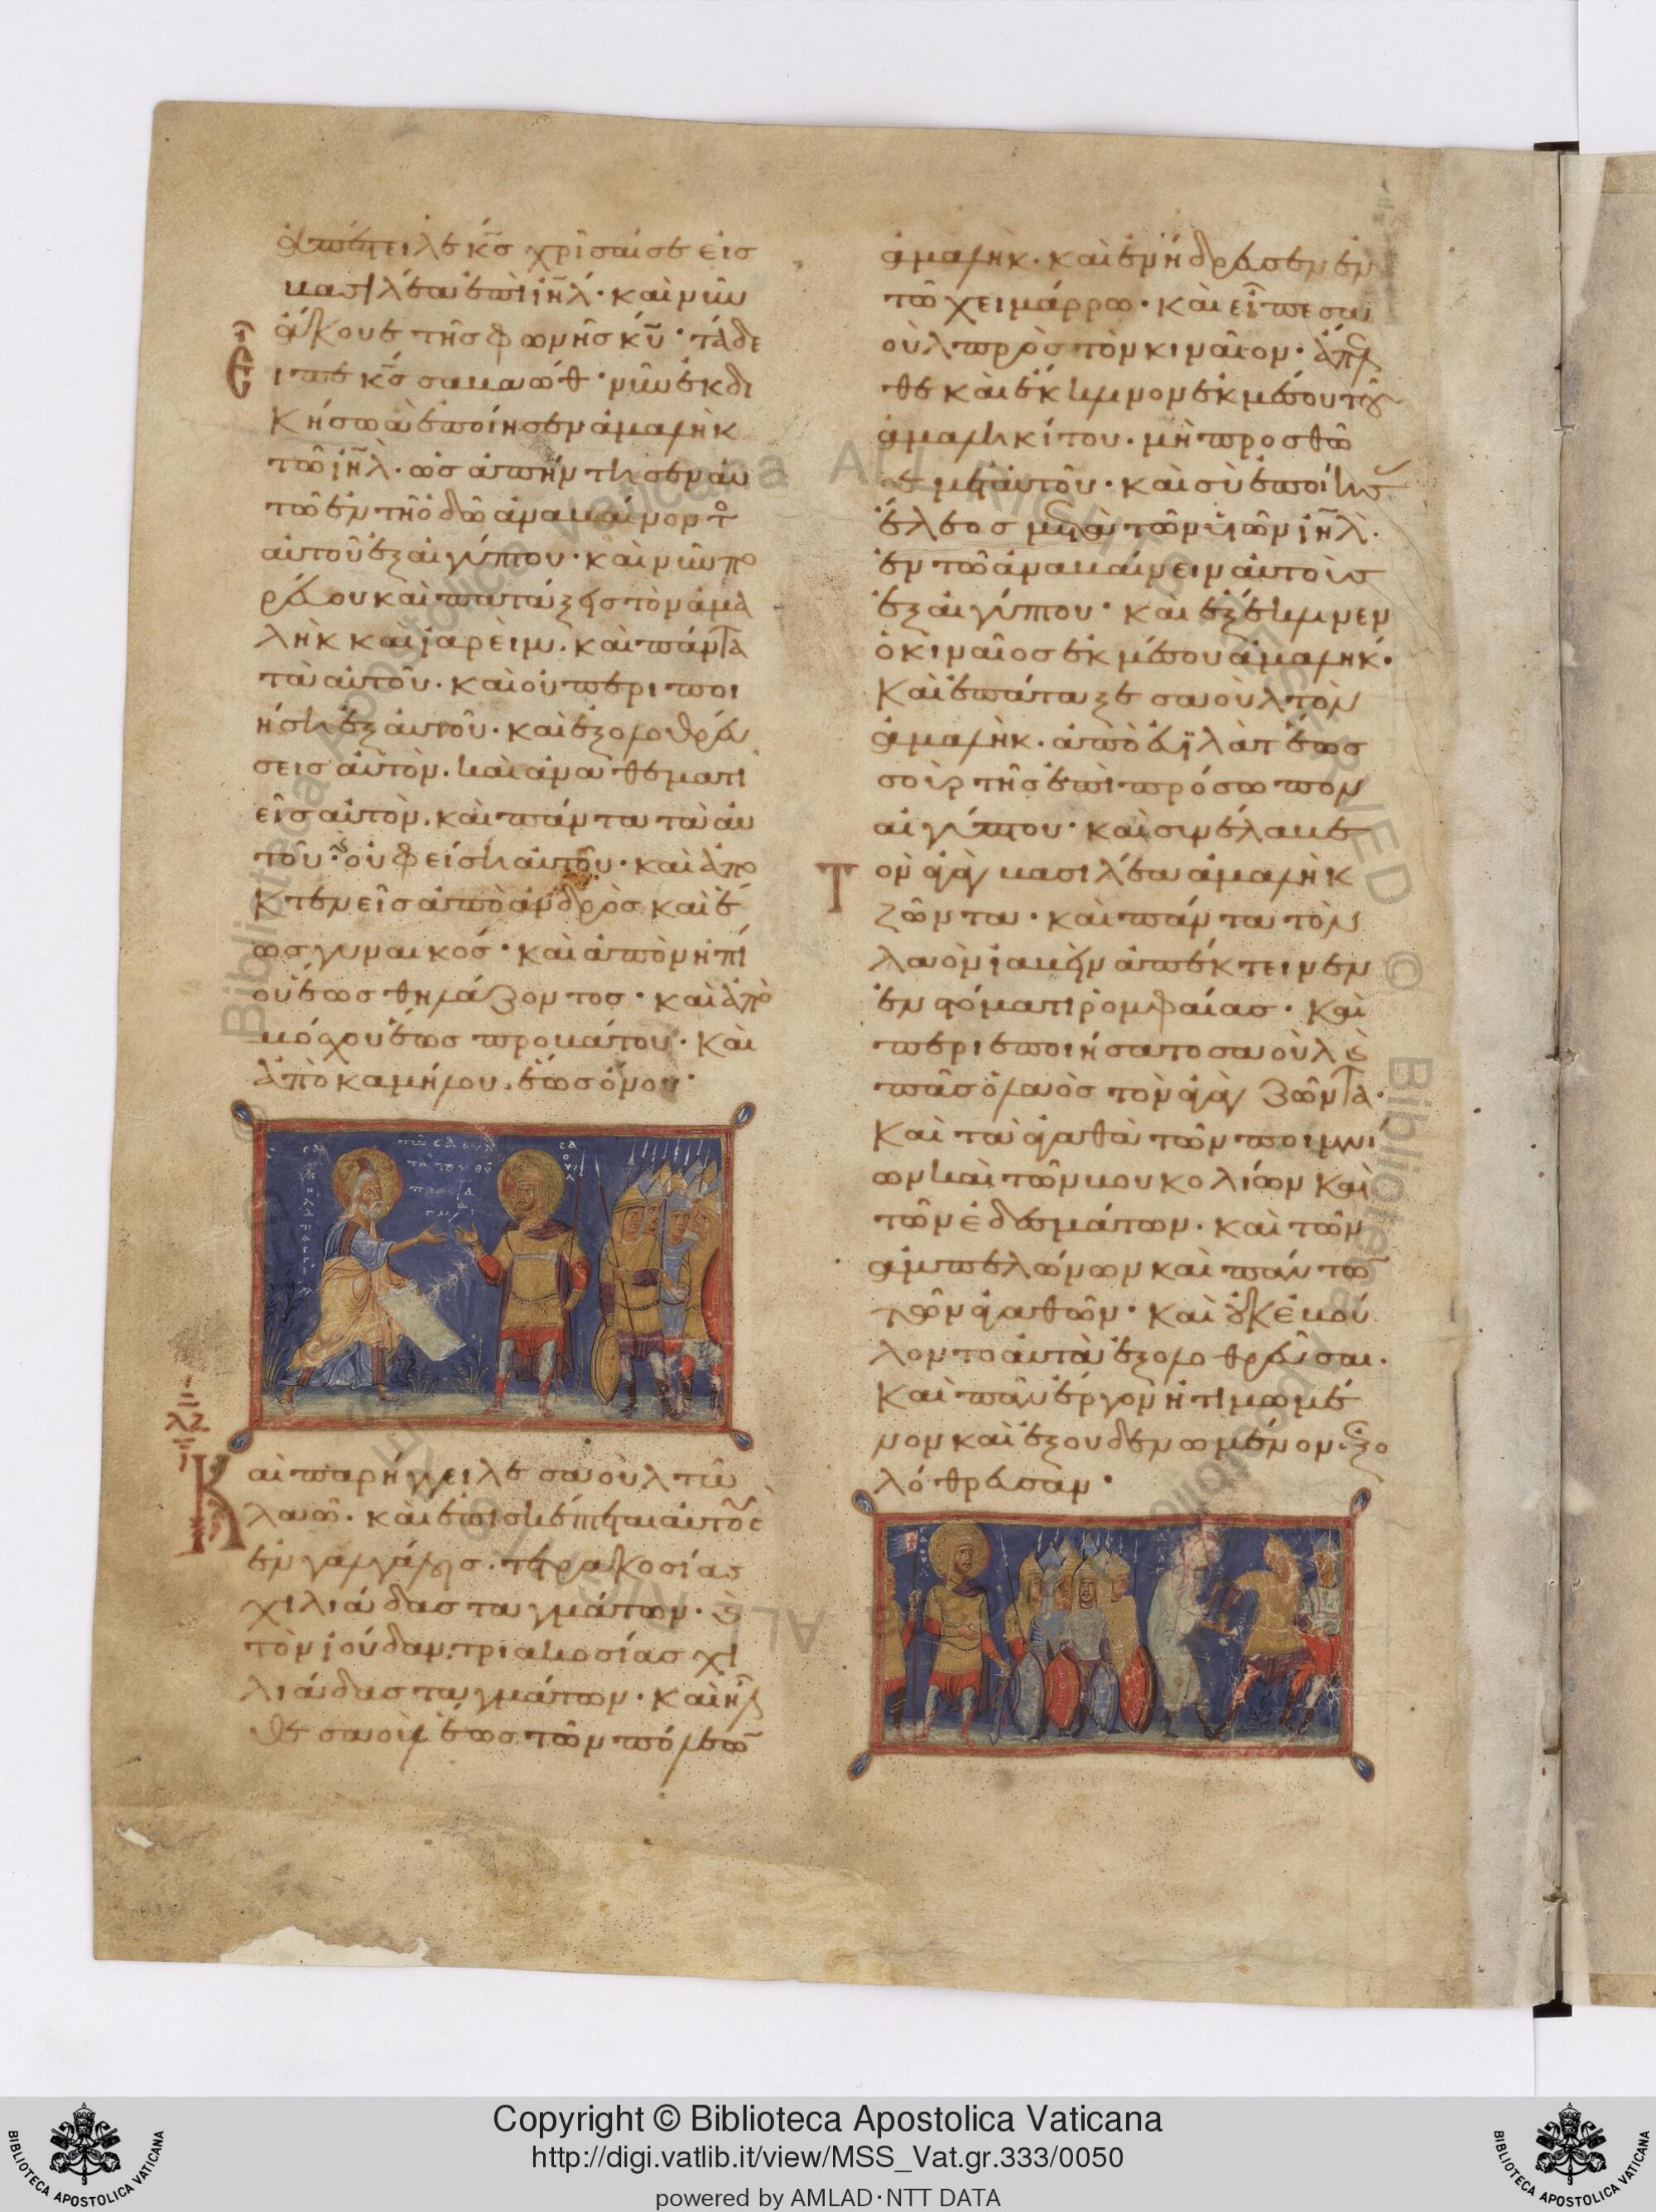 ἀπέστειλε κ̅ς̅ χρῖσαί σε εἰς
βασιλέα ἐπὶ ἰη̅λ· καὶ νῦν
ἄκουε τῆς φωνῆς κ̅υ̅· τάδε
Εἶπε κ̅ς̅ σαβαώθ· νῦν ἐκδι
κήσω ἃ ἐποίησεν ἀμαλὴκ
τῶ ἰη̅λ· ὡς ἀπήντησεν αὐ
τῶ ἐν τῆ ὁδῶ ἀναβαίνοντ
αὐτοῦ ἐξ αἰγύπτου· καὶ νῦν πο
ρεύου καὶ πατάξεις τὸν ἀμα
λὴκ καὶ ἰαρεὶμ. καὶ πάντα
τὰ αὐτοῦ. καὶ οὐ περιποι
ήση ἐξ αὐτοῦ· καὶ ἐξολοθρεύ
σεις αὐτὸν. καὶ ἀναθεματι
εῖς αὐτὸν. καὶ πάντα τὰ αὐ
τοῦ· ϗ οὐ φείση αὐτοῦ· καὶ ἀπο
κτενεῖς ἀπὸ ἀνδρὸς καὶ ἕ
ως γυναικός· καὶ ἀπὸ νηπί
ου ἕως θηλάζοντος· καὶ ἀπὸ
μόσχου ἕως προβάτου· καὶ
ἀπὸ καμήλου. ἕως ὄνου·
σαουλ
λζ
Καὶ παρήγγειλε σαοὺλ τῶ
λαῶ. καὶ ἐπισκέπτεται αὐτοὺς
ἐν γαλγάλοις. τετρακοσίας
χιλιάδας ταγμάτων. ϗ
τὸν ἰούδαν. τριακοσίας χι
λιάδας ταγμάτων. καὶ ἦλ
θε σαοὺλ ἕως τῶν πόλεω̅
ἀμαλὴκ. καὶ ἐνήδρευσεν ἐν
τῶ χειμάρρω. καὶ εἶπε σα
οὺλ πρὸς τὸν κιναῖον. ἄπελ
θε καὶ ἔκκλινον ἐκ μέσου τοῦ
ἀμαληκίτου. μὴ προσθῶ
σε μετ' αὐτοῦ. καὶ σὺ ἐποίησας
ἔλεος μετὰ τῶν υἱῶν ἰη̅λ.
ἐν τῶ ἀναβαίνειν αὐτοὺς
ἐξ αἰγύπτου· καὶ ἐξέκλινεν
ὁ κιναῖος ἐκ μέσου ἀμαλήκ.
Καὶ ἐπάταξε σαοὺλ τὸν
ἀμαλὴκ. ἀπὸ εὐϊλὰτ ἕως
σοὺρ τῆς ἐπὶ πρόσωπον
αἰγύπτου· καὶ συνέλαβε
Τὸν ἀγὰγ βασιλέα ἀμαλὴκ
ζῶντα· καὶ πάντα τὸν
λαὸν ἰαβὴν ἀπέκτεινεν
ἐν στόματι ῥομφαίας· καὶ
περιεποιήσατο σαοὺλ ϗ
πᾶς ὁ λαὸς τὸν ἀγὰγ ζῶντα.
Καὶ τὰ ἀγαθὰ τῶν ποιμνί
ων καὶ τῶν βουκολίων καὶ
τῶν ἐδεσμάτων. καὶ τῶν
ἀμπελώνων καὶ πάντω̅
τῶν ἀγαθῶν· καὶ οὐκ ἐβού
λοντο αὐτὰ ἐξολοθρεῦσαι.
Καὶ πᾶν ἔργον ἠτιμωμέ
νον καὶ ἐξουδενωμένον. ἐξο
λόθρευσαν·
Copyright © Biblioteca Apostolica Vaticana
http://digi.vatlib.it/view/MSS_Vat.gr.333/0050
powered by AMLAD·NTT DATA
BIBLIOTECA APOSTOLICA VATICANA
BIBLIOTECA APOSTOLICA VATICANA